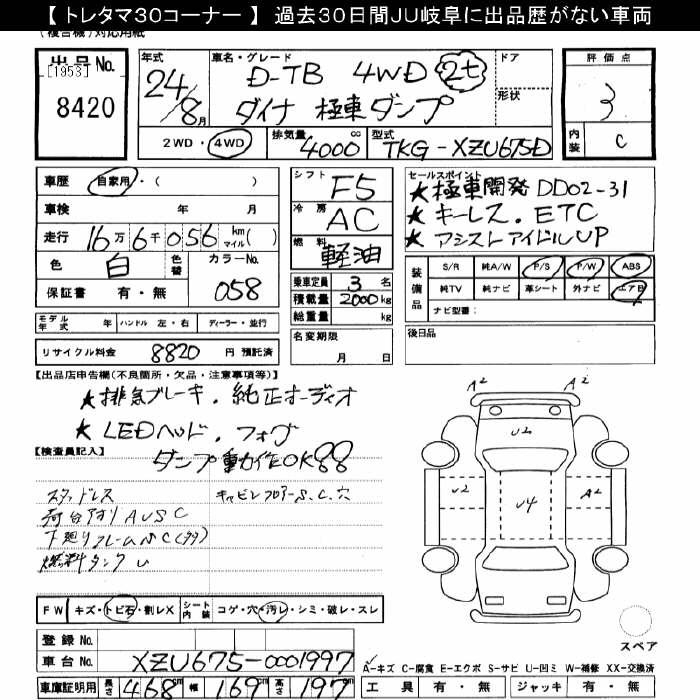 【 トレタマ30コーナー 】 過去30日間JU岐阜に出品歴がない車両
(複合機)対応用紙
出品 No.
[1953]
8420
年式
24/8月
車名・グレード
D-TB 4WD 2t
ダイナ 極東ダンプ
ドア
形状
評価点
3
内装 C
2WD・4WD
排気量 4000 cc
型式 TKG-XZU675D
車歴 自家用・( )
車検 年 月
走行 16万6千056 km マイル( )
色 白 色替 カラーNo. 058
保証書 有・無
シフト F5
冷房 AC
燃料 軽油
乗車定員 3 名
積載量 2000kg
総重量 kg
名変期限
月 日
セールスポイント
★極東開発 DD02-31
★キーレス.ETC
★アシストアイドルUP
装備品
S/R 純A/W P/S P/W ABS
純TV 純ナビ 革シート 外ナビ エアB
ナビ型番:
後日品
モデル年式 年 ハンドル 左・右 ディーラー・並行
リサイクル料金 8820 円 預託済
【出品店申告欄(不良箇所・欠品・注意事項等)】
★排気ブレーキ.純正オーディオ
★LEDヘッド.フォグ
ダンプ動作OK
【検査員記入】
スタッドレス
キャビンフロアーS.C.穴
荷台アオリAUSC
下廻りフレームSC(多)
燃料タンクU
A2 A2
U2
U2 U4 A2
FW キズ・トビ石・割レX シート内装 コゲ・穴・汚レ・シミ・破レ・スレ
スペア
登録 No.
車台 No. XZU675-0001997
A-キズ C-腐食 E-エクボ S-サビ U-凹ミ W-補修 XX-交換済
車庫証明用 長さ 468cm 幅 169cm 高さ 197cm
工具 有・無 ジャッキ 有・無